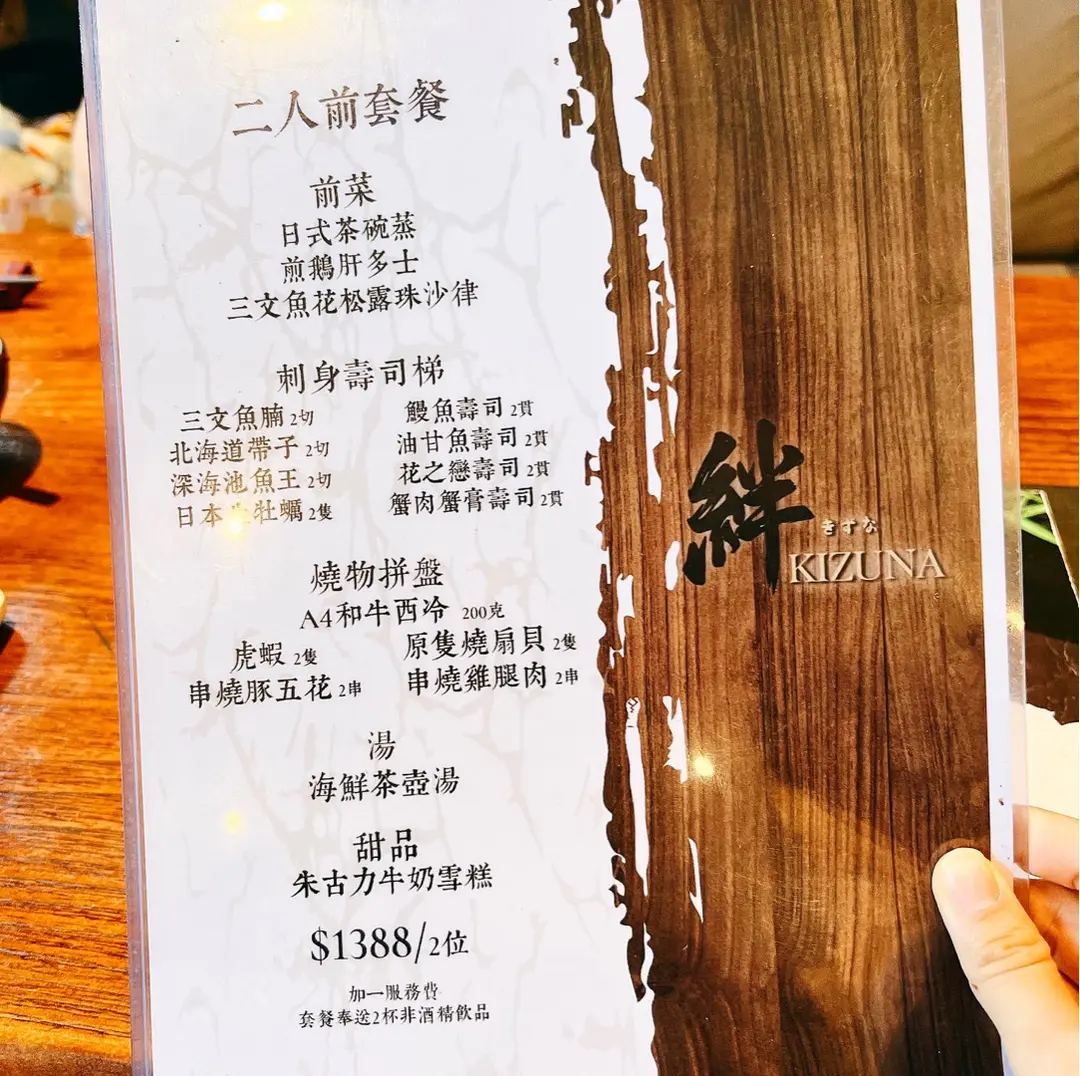 二人前套餐
前菜
日式茶碗蒸
煎鵝肝多士
三文魚花松露珠沙律
刺身壽司梯
三文魚腩 2切
鰻魚壽司 2貫
北海道帶子 2切
油甘魚壽司 2貫
深海池魚王 2切
花之戀壽司 2貫
日本生牡蠣 2隻
蟹肉蟹膏壽司 2貫
燒物拼盤
A4和牛西冷 200克
虎蝦 2隻
原隻燒扇貝 2隻
串燒豚五花 2串
串燒雞腿肉 2串
湯
海鮮茶壺湯
甜品
朱古力牛奶雪糕
$1388/2位
加一服務費
套餐奉送2杯非酒精飲品
絆
きずな
KIZUNA